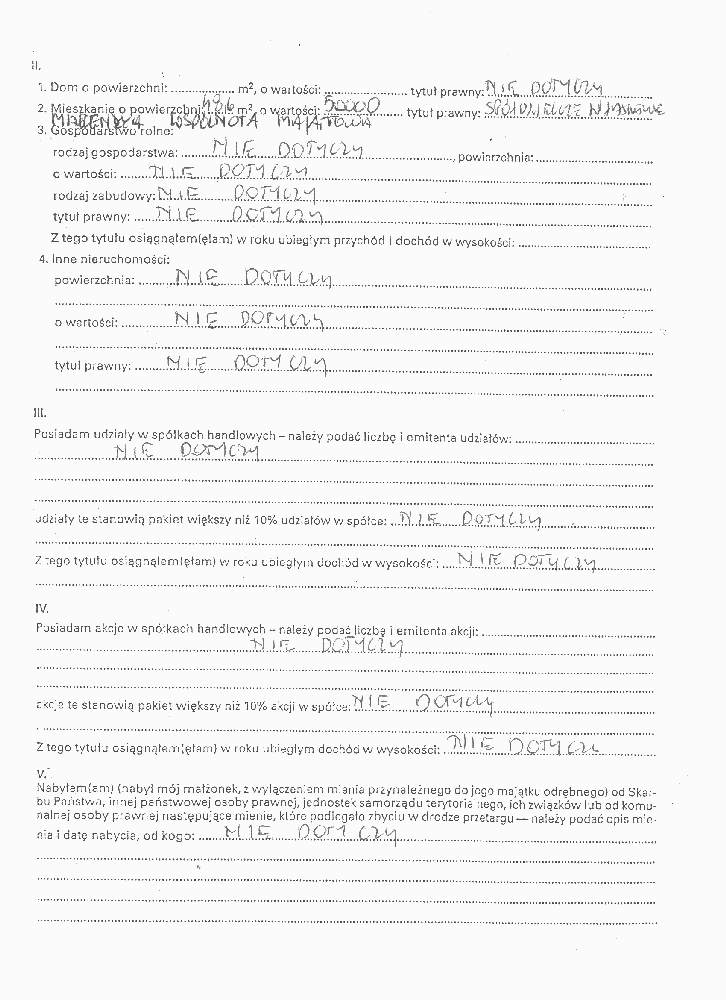 II.
1. Dom o powierzchni: .................. m², o wartości: ....................... tytuł prawny: NIE DOTYCZY
2. Mieszkanie o powierzchni: m², o wartości: 50000 tytuł prawny: SPÓŁDZIELCZE WŁASNOŚCIOWE
MAŁŻEŃSKA WSPÓLNOTA MAJĄTKOWA
3. Gospodarstwo rolne:
rodzaj gospodarstwa: NIE DOTYCZY, powierzchnia: ..............................
o wartości: NIE DOTYCZY
rodzaj zabudowy: NIE DOTYCZY
tytuł prawny: NIE DOTYCZY
Z tego tytułu osiągnąłem(ęłam) w roku ubiegłym przychód i dochód w wysokości: ..............................
4. Inne nieruchomości:
powierzchnia: NIE DOTYCZY
o wartości: NIE DOTYCZY
tytuł prawny: NIE DOTYCZY
III.
Posiadam udziały w spółkach handlowych – należy podać liczbę i emitenta udziałów: ..............................
NIE DOTYCZY
udziały te stanowią pakiet większy niż 10% udziałów w spółce: NIE DOTYCZY
Z tego tytułu osiągnąłem(ęłam) w roku ubiegłym dochód w wysokości: NIE DOTYCZY
IV.
Posiadam akcje w spółkach handlowych – należy podać liczbę i emitenta akcji: ..............................
NIE DOTYCZY
akcje te stanowią pakiet większy niż 10% akcji w spółce: NIE DOTYCZY
Z tego tytułu osiągnąłem(ęłam) w roku ubiegłym dochód w wysokości: NIE DOTYCZY
V.
Nabyłem(am) (nabył mój małżonek, z wyłączeniem mienia przynależnego do jego majątku odrębnego) od Skar-
bu Państwa, innej państwowej osoby prawnej, jednostek samorządu terytorialnego, ich związków lub od komu-
nalnej osoby prawnej następujące mienie, które podlegało zbyciu w drodze przetargu — należy podać opis mie-
nia i datę nabycia, od kogo: NIE DOTYCZY